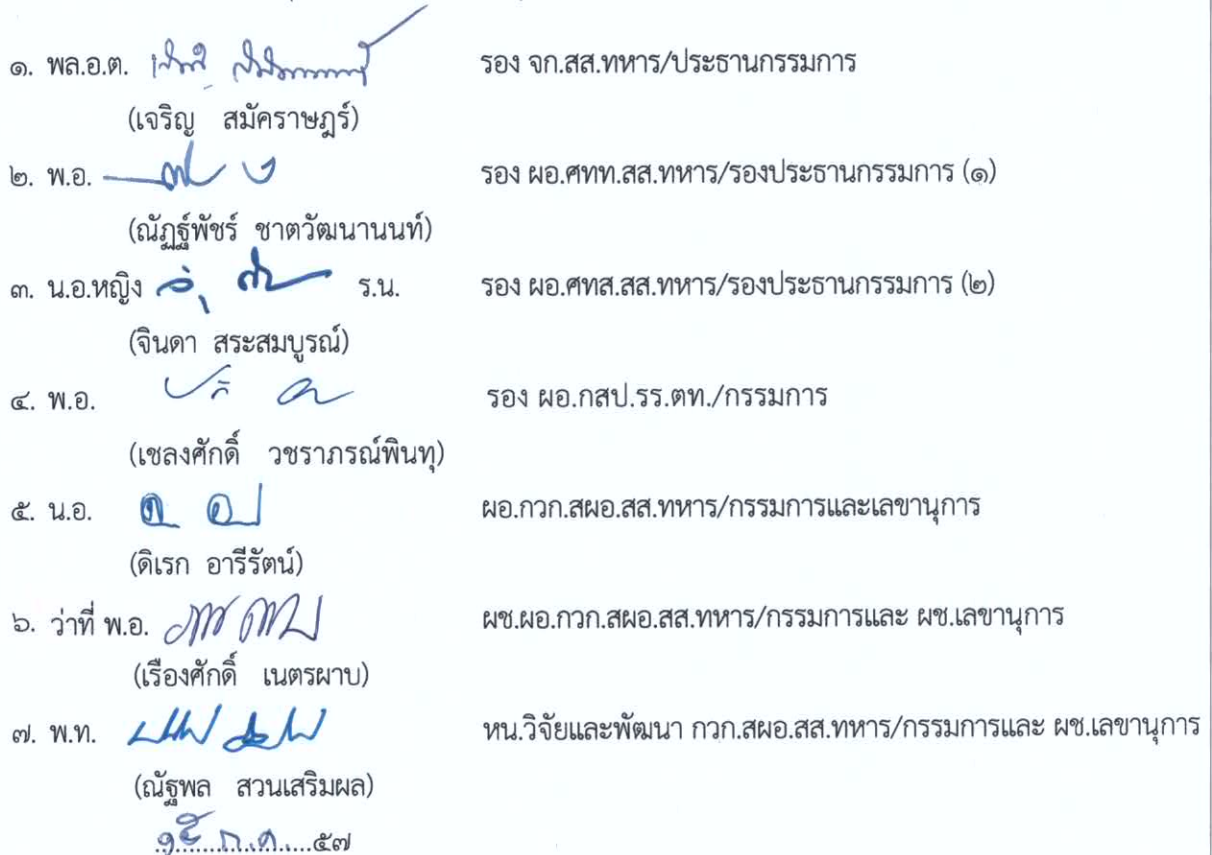 ๑. พล.อ.ต. รอง จก.สส.ทหาร/ประธานกรรมการ
(เจริญ สมัคราษฎร์)
๒. พ.อ. รอง ผอ.ศทท.สส.ทหาร/รองประธานกรรมการ (๑)
(ณัฏฐ์พัชร์ ชาตวัฒนานนท์)
๓. น.อ.หญิง ร.น. รอง ผอ.ศทส.สส.ทหาร/รองประธานกรรมการ (๒)
(จินดา สระสมบูรณ์)
๔. พ.อ. รอง ผอ.กสป.รร.ตท./กรรมการ
(เชลงศักดิ์ วชราภรณ์พินทุ)
๕. น.อ. ผอ.กวก.สผอ.สส.ทหาร/กรรมการและเลขานุการ
(ดิเรก อารีรัตน์)
๖. ว่าที่ พ.อ. ผช.ผอ.กวก.สผอ.สส.ทหาร/กรรมการและ ผช.เลขานุการ
(เรืองศักดิ์ เนตรผาบ)
๗. พ.ท. หน.วิจัยและพัฒนา กวก.สผอ.สส.ทหาร/กรรมการและ ผช.เลขานุการ
(ณัฐพล สวนเสริมผล)
ก.ค....๕๗